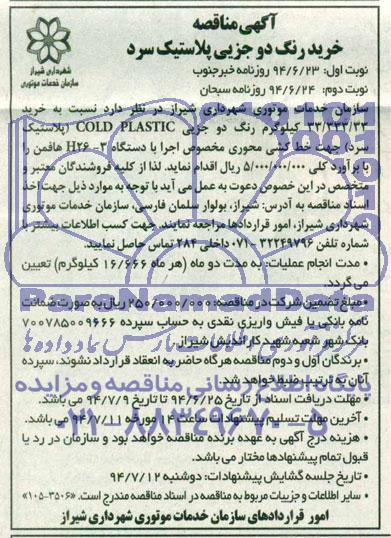 آگهی مناقصه
خرید رنگ دو جزیی پلاستیک سرد
شهرداری شیراز
سازمان خدمات موتوری
نوبت اول: ۹۴/۶/۲۳ روزنامه خبرجنوب
نوبت دوم: ۹۴/۶/۲۴ روزنامه سبحان
سازمان خدمات موتوری شهرداری شیراز در نظر دارد نسبت به خرید
۳۳/۳۳۳/۳۳ کیلوگرم رنگ دو جزیی COLD PLASTIC (پلاستیک
سرد) جهت خط کشی محوری مخصوص اجرا با دستگاه H۲۶-۳ هافمن را
با برآورد کلی ۵/۰۰۰/۰۰۰/۰۰۰ ریال اقدام نماید. لذا از کلیه فروشندگان معتبر و
متخصص در این خصوص دعوت به عمل می آید با توجه به موارد ذیل جهت اخذ
اسناد مناقصه به آدرس: شیراز، بولوار سلمان فارسی، سازمان خدمات موتوری
شهرداری شیراز، امور قراردادها مراجعه نمایند. جهت کسب اطلاعات بیشتر با
شماره تلفن ۳۲۲۴۹۷۹۶-۰۷۱ داخلی ۲۸۴ تماس حاصل نمایید.
• مدت انجام عملیات: به مدت دو ماه (هر ماه ۱۶/۶۶۶ کیلوگرم) تعیین
می گردد.
• مبلغ تضمین شرکت در مناقصه: ۲۵۰/۰۰۰/۰۰۰ ریال به صورت ضمانت
نامه بانکی یا فیش واریزی نقدی به حساب سپرده ۷۰۰۷۸۵۰۰۹۶۶۶
بانک شهر شعبه شهید کاراندیش شیراز
• برندگان اول و دوم مناقصه هرگاه حاضر به انعقاد قرارداد نشوند، سپرده
آنان به ترتیب ضبط خواهد شد.
• مهلت دریافت اسناد از تاریخ ۹۴/۶/۲۵ تا تاریخ ۹۴/۷/۹ می باشد.
• آخرین مهلت تسلیم پیشنهادات ساعت ۱۴ مورخه ۹۴/۷/۱۱ می باشد.
• هزینه درج آگهی به عهده برنده مناقصه خواهد بود و سازمان در رد یا
قبول تمام پیشنهادها مختار می باشد.
• تاریخ جلسه گشایش پیشنهادات: دوشنبه ۹۴/۷/۱۲
• سایر اطلاعات و جزییات مربوط به مناقصه در اسناد مناقصه مندرج است. «۳۵۰۶-۱۰۵»
امور قراردادهای سازمان خدمات موتوری شهرداری شیراز
پایگاه اطلاع رسانی مناقصه و مزایده
۰۲۱-۸۸۳۴۹۶۷۰-۵